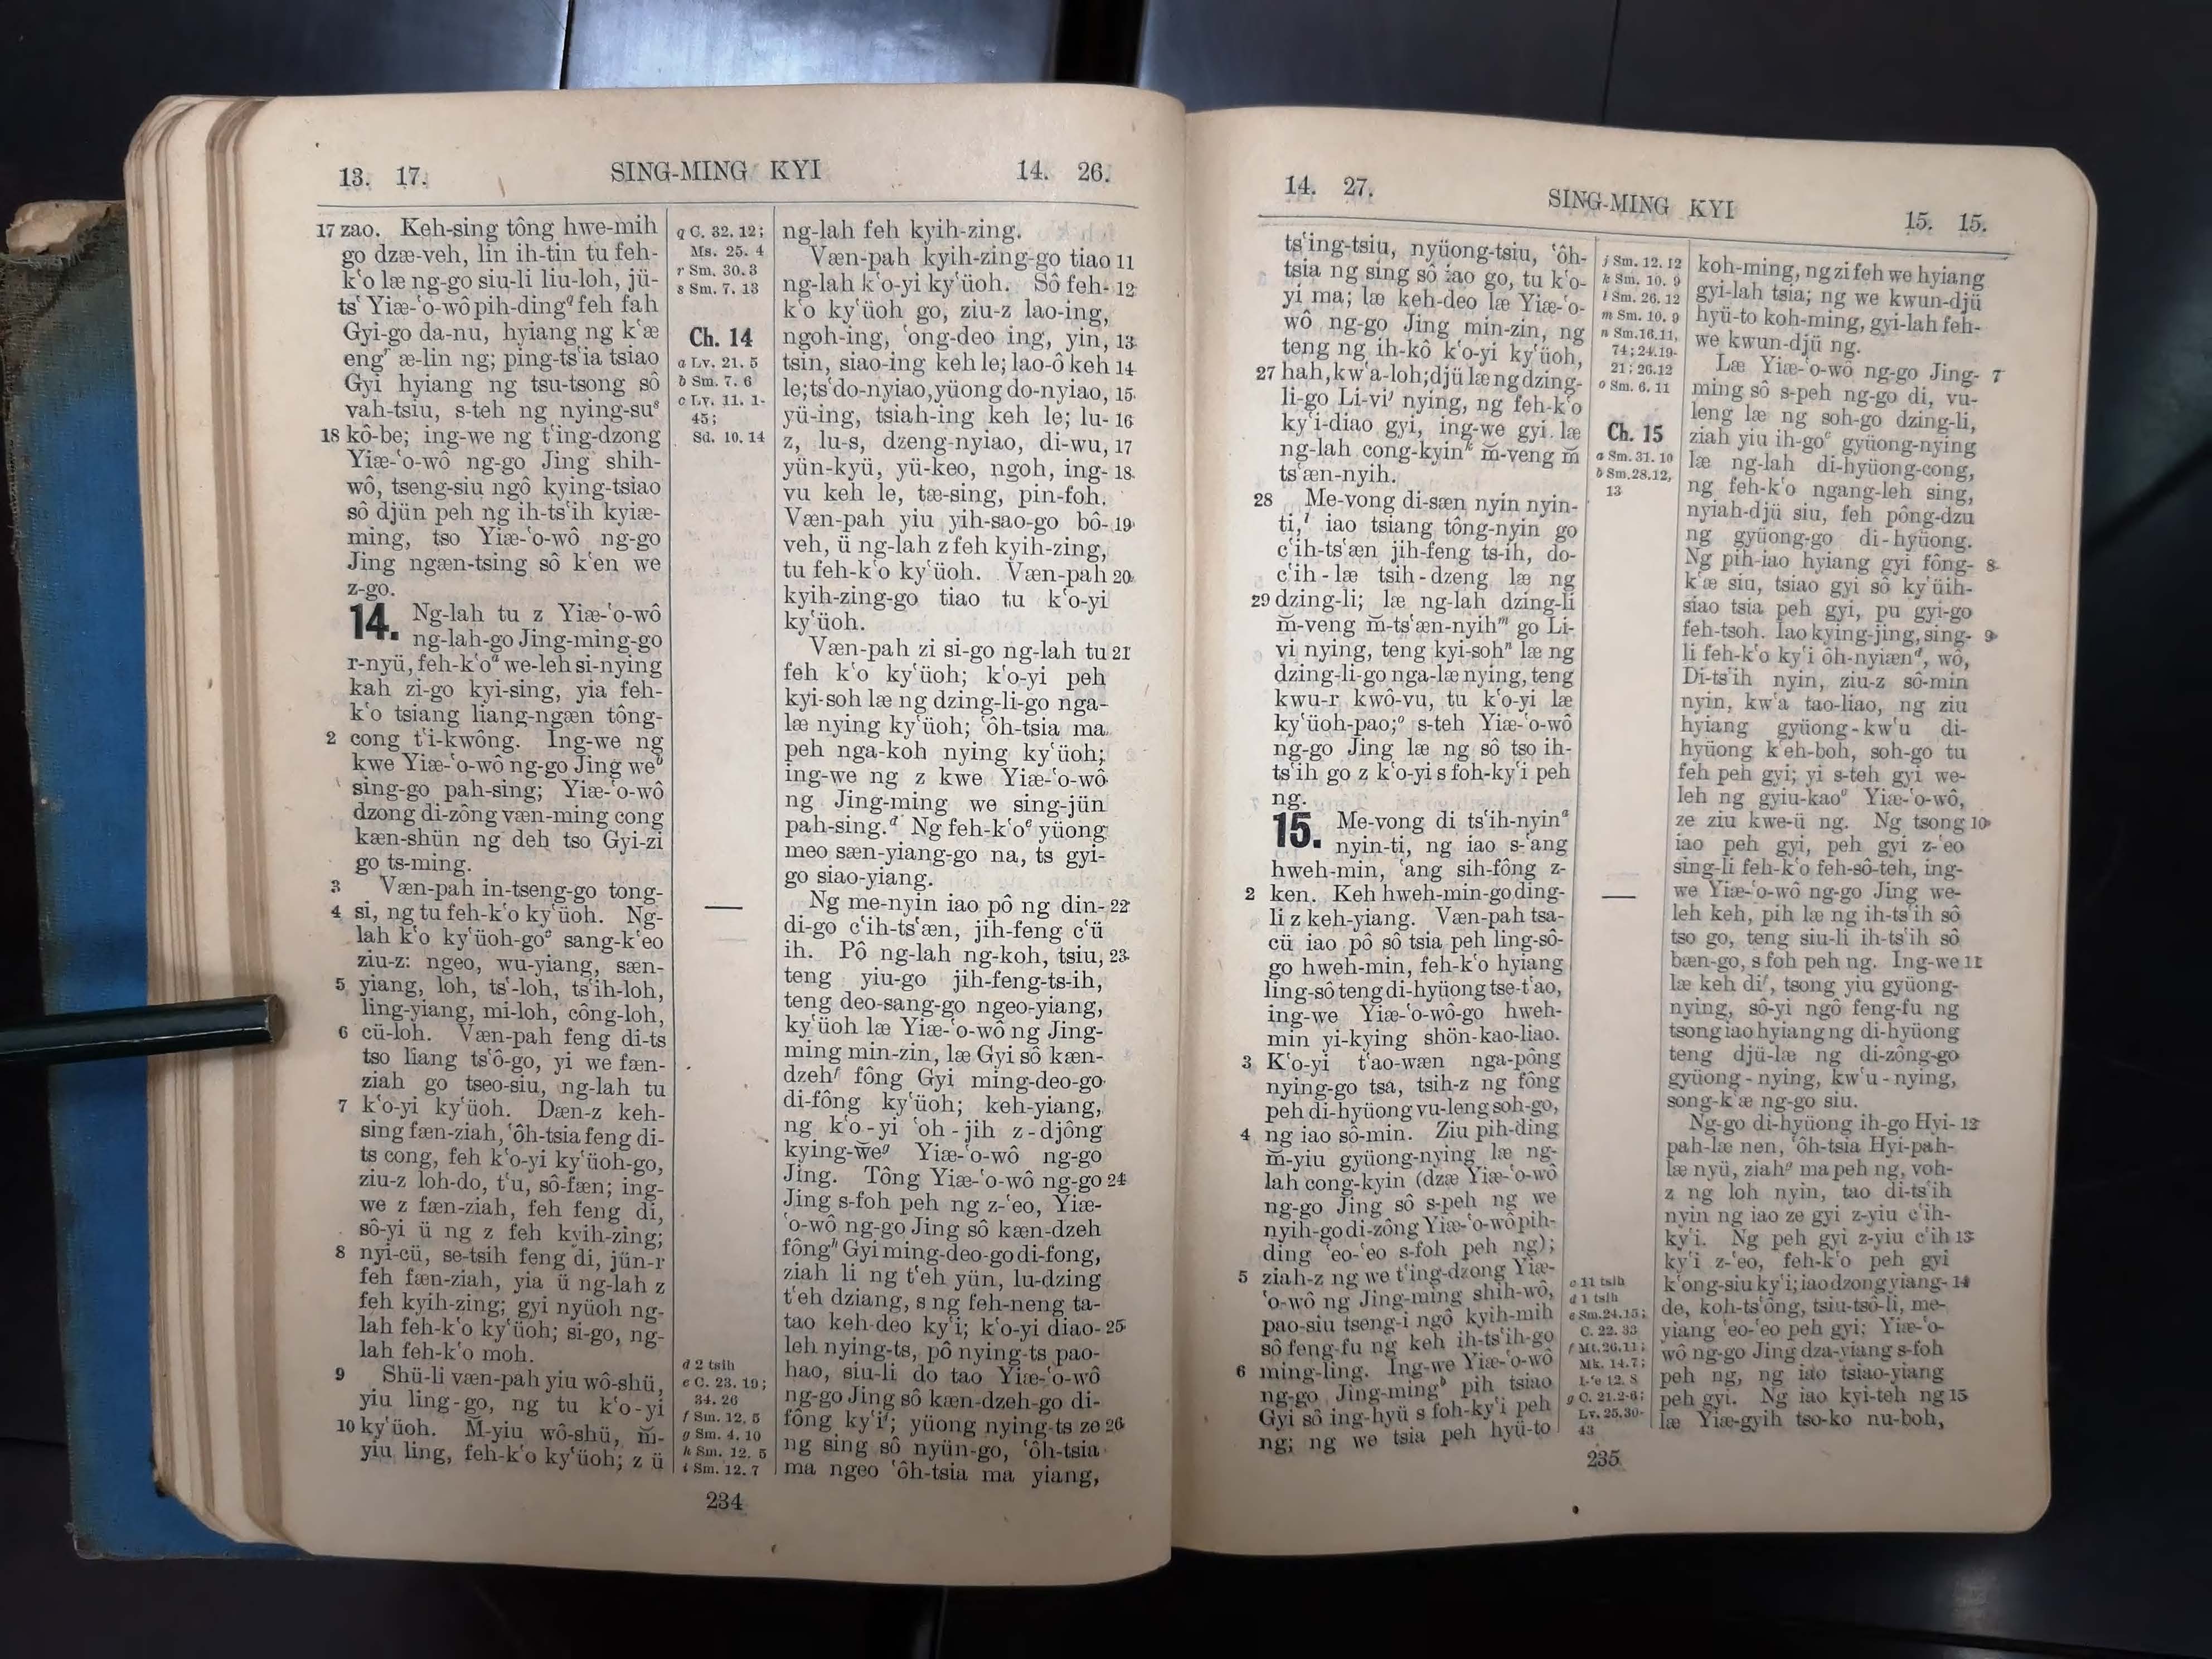 13. 17. SING-MING KYI 14. 26.
17 zao. Keh-sing tông hwe-mih
go dzæ-veh, lin ih-tin tu feh-
k‘o læ ng-go siu-li liu-loh, jü-
ts‘ Yiæ-‘o-wô pih-ding q feh fah
Gyi-go da-nu, hyiang ng k‘æ
eng r æ-lin ng; ping-ts‘ia tsiao
Gyi hyiang ng tsu-tsong sô
vah-tsiu, s-teh ng nying-su s
18 kô-be; ing-we ng t‘ing-dzong
Yiæ-‘o-wô ng-go Jing shih-
wô, tseng-siu ngô kying-tsiao
sô djün peh ng ih-ts‘ih kyiæ-
ming, tso Yiæ-‘o-wô ng-go
Jing ngæn-tsing sô k‘en we
z-go.
14. Ng-lah tu z Yiæ-‘o-wô
ng-lah-go Jing-ming-go
r-nyü, feh-k‘o a we-leh si-nying
kah zi-go kyi-sing, yia feh-
k‘o tsiang liang-ngæn tông-
2 cong t‘i-kwông. Ing-we ng
kwe Yiæ-‘o-wô ng-go Jing we b
sing-go pah-sing; Yiæ-‘o-wô
dzong di-zông væn-ming cong
kæn-shün ng deh tso Gyi-zi
go ts-ming.
3 Væn-pah in-tseng-go tong-
4 si, ng tu feh-k‘o ky‘üoh. Ng-
lah k‘o ky‘üoh-go c sang-k‘eo
ziu-z: ngeo, wu-yiang, sæn-
5 yiang, loh, ts‘-loh, ts‘ih-loh,
ling-yiang, mi-loh, công-loh,
6 cü-loh. Væn-pah feng di-ts
tso liang ts‘ô-go, yi we fæn-
ziah go tseo-siu, ng-lah tu
7 k‘o-yi ky‘üoh. Dæn-z keh-
sing fæn-ziah, ‘ôh-tsia feng di-
ts cong, feh k‘o-yi ky‘üoh-go,
ziu-z loh-do, t‘u, sô-fæn; ing-
we z fæn-ziah, feh feng di,
sô-yi ü ng z feh kyih-zing;
8 nyi-cü, se-tsih feng di, jün-r
feh fæn-ziah, yia ü ng-lah z
feh kyih-zing; gyi nyüoh ng-
lah feh-k‘o ky‘üoh; si-go, ng-
lah feh-k‘o moh.
9 Shü-li væn-pah yiu wô-shü,
yiu ling-go, ng tu k‘o-yi
10 ky‘üoh. M̆-yiu wô-shü, m̆-
yiu ling, feh-k‘o ky‘üoh; z ü
q C. 32. 12;
Ms. 25. 4
r Sm. 30. 3
s Sm. 7. 13
Ch. 14
a Lv. 21. 5
b Sm. 7. 6
c Lv. 11. 1-
45;
Sd. 10. 14
d 2 tsih
e C. 23. 19;
34. 26
f Sm. 12. 5
g Sm. 4. 10
h Sm. 12. 5
i Sm. 12. 7
ng-lah feh kyih-zing.
Væn-pah kyih-zing-go tiao 11
ng-lah k‘o-yi ky‘üoh. Sô feh- 12
k‘o ky‘üoh go, ziu-z lao-ing,
ngoh-ing, ‘ong-deo ing, yin, 13
tsin, siao-ing keh le; lao-ô keh 14
le; ts‘ do-nyiao, yüong do-nyiao, 15
yü-ing, tsiah-ing keh le; lu- 16
z, lu-s, dzeng-nyiao, di-wu, 17
yün-kyü, yü-keo, ngoh, ing- 18
vu keh le, tæ-sing, pin-foh.
Væn-pah yiu yih-sao-go bô- 19
veh, ü ng-lah z feh kyih-zing,
tu feh-k‘o ky‘üoh. Væn-pah 20
kyih-zing-go tiao tu k‘o-yi
ky‘üoh.
Væn-pah zi si-go ng-lah tu 21
feh k‘o ky‘üoh; k‘o-yi peh
kyi-soh læ ng dzing-li-go nga-
læ nying ky‘üoh; ‘ôh-tsia ma
peh nga-koh nying ky‘üoh;
ing-we ng z kwe Yiæ-‘o-wô
ng Jing-ming we sing-jün
pah-sing. d Ng feh-k‘o e yüong
meo sæn-yiang-go na, ts gyi-
go siao-yiang.
Ng me-nyin iao pô ng din- 22
di-go c‘ih-ts‘æn, jih-feng c‘ü
ih. Pô ng-lah ng-koh, tsiu, 23
teng yiu-go jih-feng-ts-ih,
teng deo-sang-go ngeo-yiang,
ky‘üoh læ Yiæ-‘o-wô ng Jing-
ming min-zin, læ Gyi sô kæn-
dzeh f fông Gyi ming-deo-go
di-fông ky‘üoh; keh-yiang,
ng k‘o-yi ‘oh-jih z-djông
kying-we g Yiæ-‘o-wô ng-go
Jing. Tông Yiæ-‘o-wô ng-go 24
Jing s-foh peh ng z-‘eo, Yiæ-
‘o-wô ng-go Jing sô kæn-dzeh
fông h Gyi ming-deo-go di-fong,
ziah li ng t‘eh yün, lu-dzing
t‘eh dziang, s ng feh-neng ta-
tao keh-deo ky‘i; k‘o-yi diao- 25
leh nying-ts, pô nying-ts pao-
hao, siu-li do tao Yiæ-‘o-wô
ng-go Jing sô kæn-dzeh-go di-
fông ky‘i i; yüong nying-ts ze 26
ng sing sô nyün-go, ‘ôh-tsia
ma ngeo ‘ôh-tsia ma yiang,
234
14. 27. SING-MING KYI 15. 15.
ts‘ing-tsiu, nyüong-tsiu, ‘ôh-
tsia ng sing sô iao go, tu k‘o-
yi ma; læ keh-deo læ Yiæ-‘o-
wô ng-go Jing min-zin, ng
teng ng ih-kô k‘o-yi ky‘üoh,
27 hah, kw‘a-loh; djü læ ng dzing-
li-go Li-vi j nying, ng feh-k‘o
ky‘i-diao gyi, ing-we gyi læ
ng-lah cong-kyin k m̆-veng m̆
ts‘æn-nyih.
28 Me-vong di-sæn nyin nyin-
ti, l iao tsiang tông-nyin go
c‘ih-ts‘æn jih-feng ts-ih, do-
c‘ih-læ tsih-dzeng læ ng
29 dzing-li; læ ng-lah dzing-li
m̆-veng m̆-ts‘æn-nyih m go Li-
vi nying, teng kyi-soh n læ ng
dzing-li-go nga-læ nying, teng
kwu-r kwô-vu, tu k‘o-yi læ
ky‘üoh-pao; o s-teh Yiæ-‘o-wô
ng-go Jing læ ng sô tso ih-
ts‘ih go z k‘o-yi s foh-ky‘i peh
ng.
15. Me-vong di ts‘ih-nyin a
nyin-ti, ng iao s-‘ang
hweh-min, ‘ang sih-fông z-
2 ken. Keh hweh-min-go ding-
li z keh-yiang. Væn-pah tsa-
cü iao pô sô tsia peh ling-sô-
go hweh-min, feh-k‘o hyiang
ling-sô teng di-hyüong tse-t‘ao,
ing-we Yiæ-‘o-wô-go hweh-
min yi-kying shön-kao-liao.
3 K‘o-yi t‘ao-wæn nga-pông
nying-go tsa, tsih-z ng fông
peh di-hyüong vu-leng soh-go,
4 ng iao sô-min. Ziu pih-ding
m̆-yiu gyüong-nying læ ng-
lah cong-kyin (dzæ Yiæ-‘o-wô
ng-go Jing sô s-peh ng we
nyih-go di-zông Yiæ-‘o-wô pih-
ding ‘eo-‘eo s-foh peh ng);
5 ziah-z ng we t‘ing-dzong Yiæ-
‘o-wô ng Jing-ming shih-wô,
pao-siu tseng-i ngô kyih-mih
sô feng-fu ng keh ih-ts‘ih-go
6 ming-ling. Ing-we Yiæ-‘o-wô
ng-go Jing-ming b pih tsiao
Gyi sô ing-hyü s foh-ky‘i peh
ng; ng we tsia peh hyü-to
j Sm. 12. 12
k Sm. 10. 9
l Sm. 26. 12
m Sm. 10. 9
n Sm. 16. 11,
74; 24. 19-
21; 26. 12
o Sm. 6. 11
Ch. 15
a Sm. 31. 10
b Sm. 28. 12,
13
c 11 tsih
d 1 tsih
e Sm. 24. 15;
C. 22. 33
f Mt. 26. 11;
Mk. 14. 7;
12. 8
g C. 21. 2-6;
Lv. 25. 39-
43
koh-ming, ng zi feh we hyiang
gyi-lah tsia; ng we kwun-djü
hyü-to koh-ming, gyi-lah feh-
we kwun-djü ng.
Læ Yiæ-‘o-wô ng-go Jing- 7
ming sô s-peh ng-go di, vu-
leng læ ng soh-go dzing-li,
ziah yiu ih-go c gyüong-nying
læ ng-lah di-hyüong-cong,
ng feh-k‘o ngang-leh sing,
nyiah-djü siu, feh pông-dzu
ng gyüong-go di-hyüong.
Ng pih-iao hyiang gyi fông- 8
k‘æ siu, tsiao gyi sô ky‘üih-
siao tsia peh gyi, pu gyi-go
feh-tsoh. Iao kying-jing, sing- 9
li feh-k‘o ky‘i ôh-nyiæn d, wô,
Di-ts‘ih nyin, ziu-z sô-min
nyin, kw‘a tao-liao, ng ziu
hyiang gyüong-kw‘u di-
hyüong k‘eh-boh, soh-go tu
feh peh gyi; yi s-teh gyi we-
leh ng gyiu-kao e Yiæ-‘o-wô,
ze ziu kwe-ü ng. Ng tsong 10
iao peh gyi, peh gyi z-‘eo
sing-li feh-k‘o feh-sô-teh, ing-
we Yiæ-‘o-wô ng-go Jing we-
leh keh, pih læ ng ih-ts‘ih sô
tso go, teng siu-li ih-ts‘ih sô
bæn-go, s foh peh ng. Ing-we 11
læ keh di f, tsong yiu gyüong-
nying, sô-yi ngô feng-fu ng
tsong iao hyiang ng di-hyüong
teng djü-læ ng di-zông-go
gyüong-nying, kw‘u-nying,
song-k‘æ ng-go siu.
Ng-go di-hyüong ih-go Hyi- 12
pah-læ nen, ‘ôh-tsia Hyi-pah-
læ nyü, ziah g ma peh ng, voh-
z ng loh nyin, tao di-ts‘ih
nyin ng iao ze gyi z-yiu c‘ih-
ky‘i. Ng peh gyi z-yiu c‘ih 13
ky‘i z-‘eo, feh-k‘o peh gyi
k‘ong-siu ky‘i; iao dzong yiang- 14
de, koh-ts‘ông, tsiu-tsô-li, me-
yiang ‘eo-‘eo peh gyi; Yiæ-‘o-
wô ng-go Jing dza-yiang s-foh
peh ng, ng iao tsiao-yiang
peh gyi. Ng iao kyi-teh ng 15
læ Yiæ-gyih tso-ko nu-boh,
235